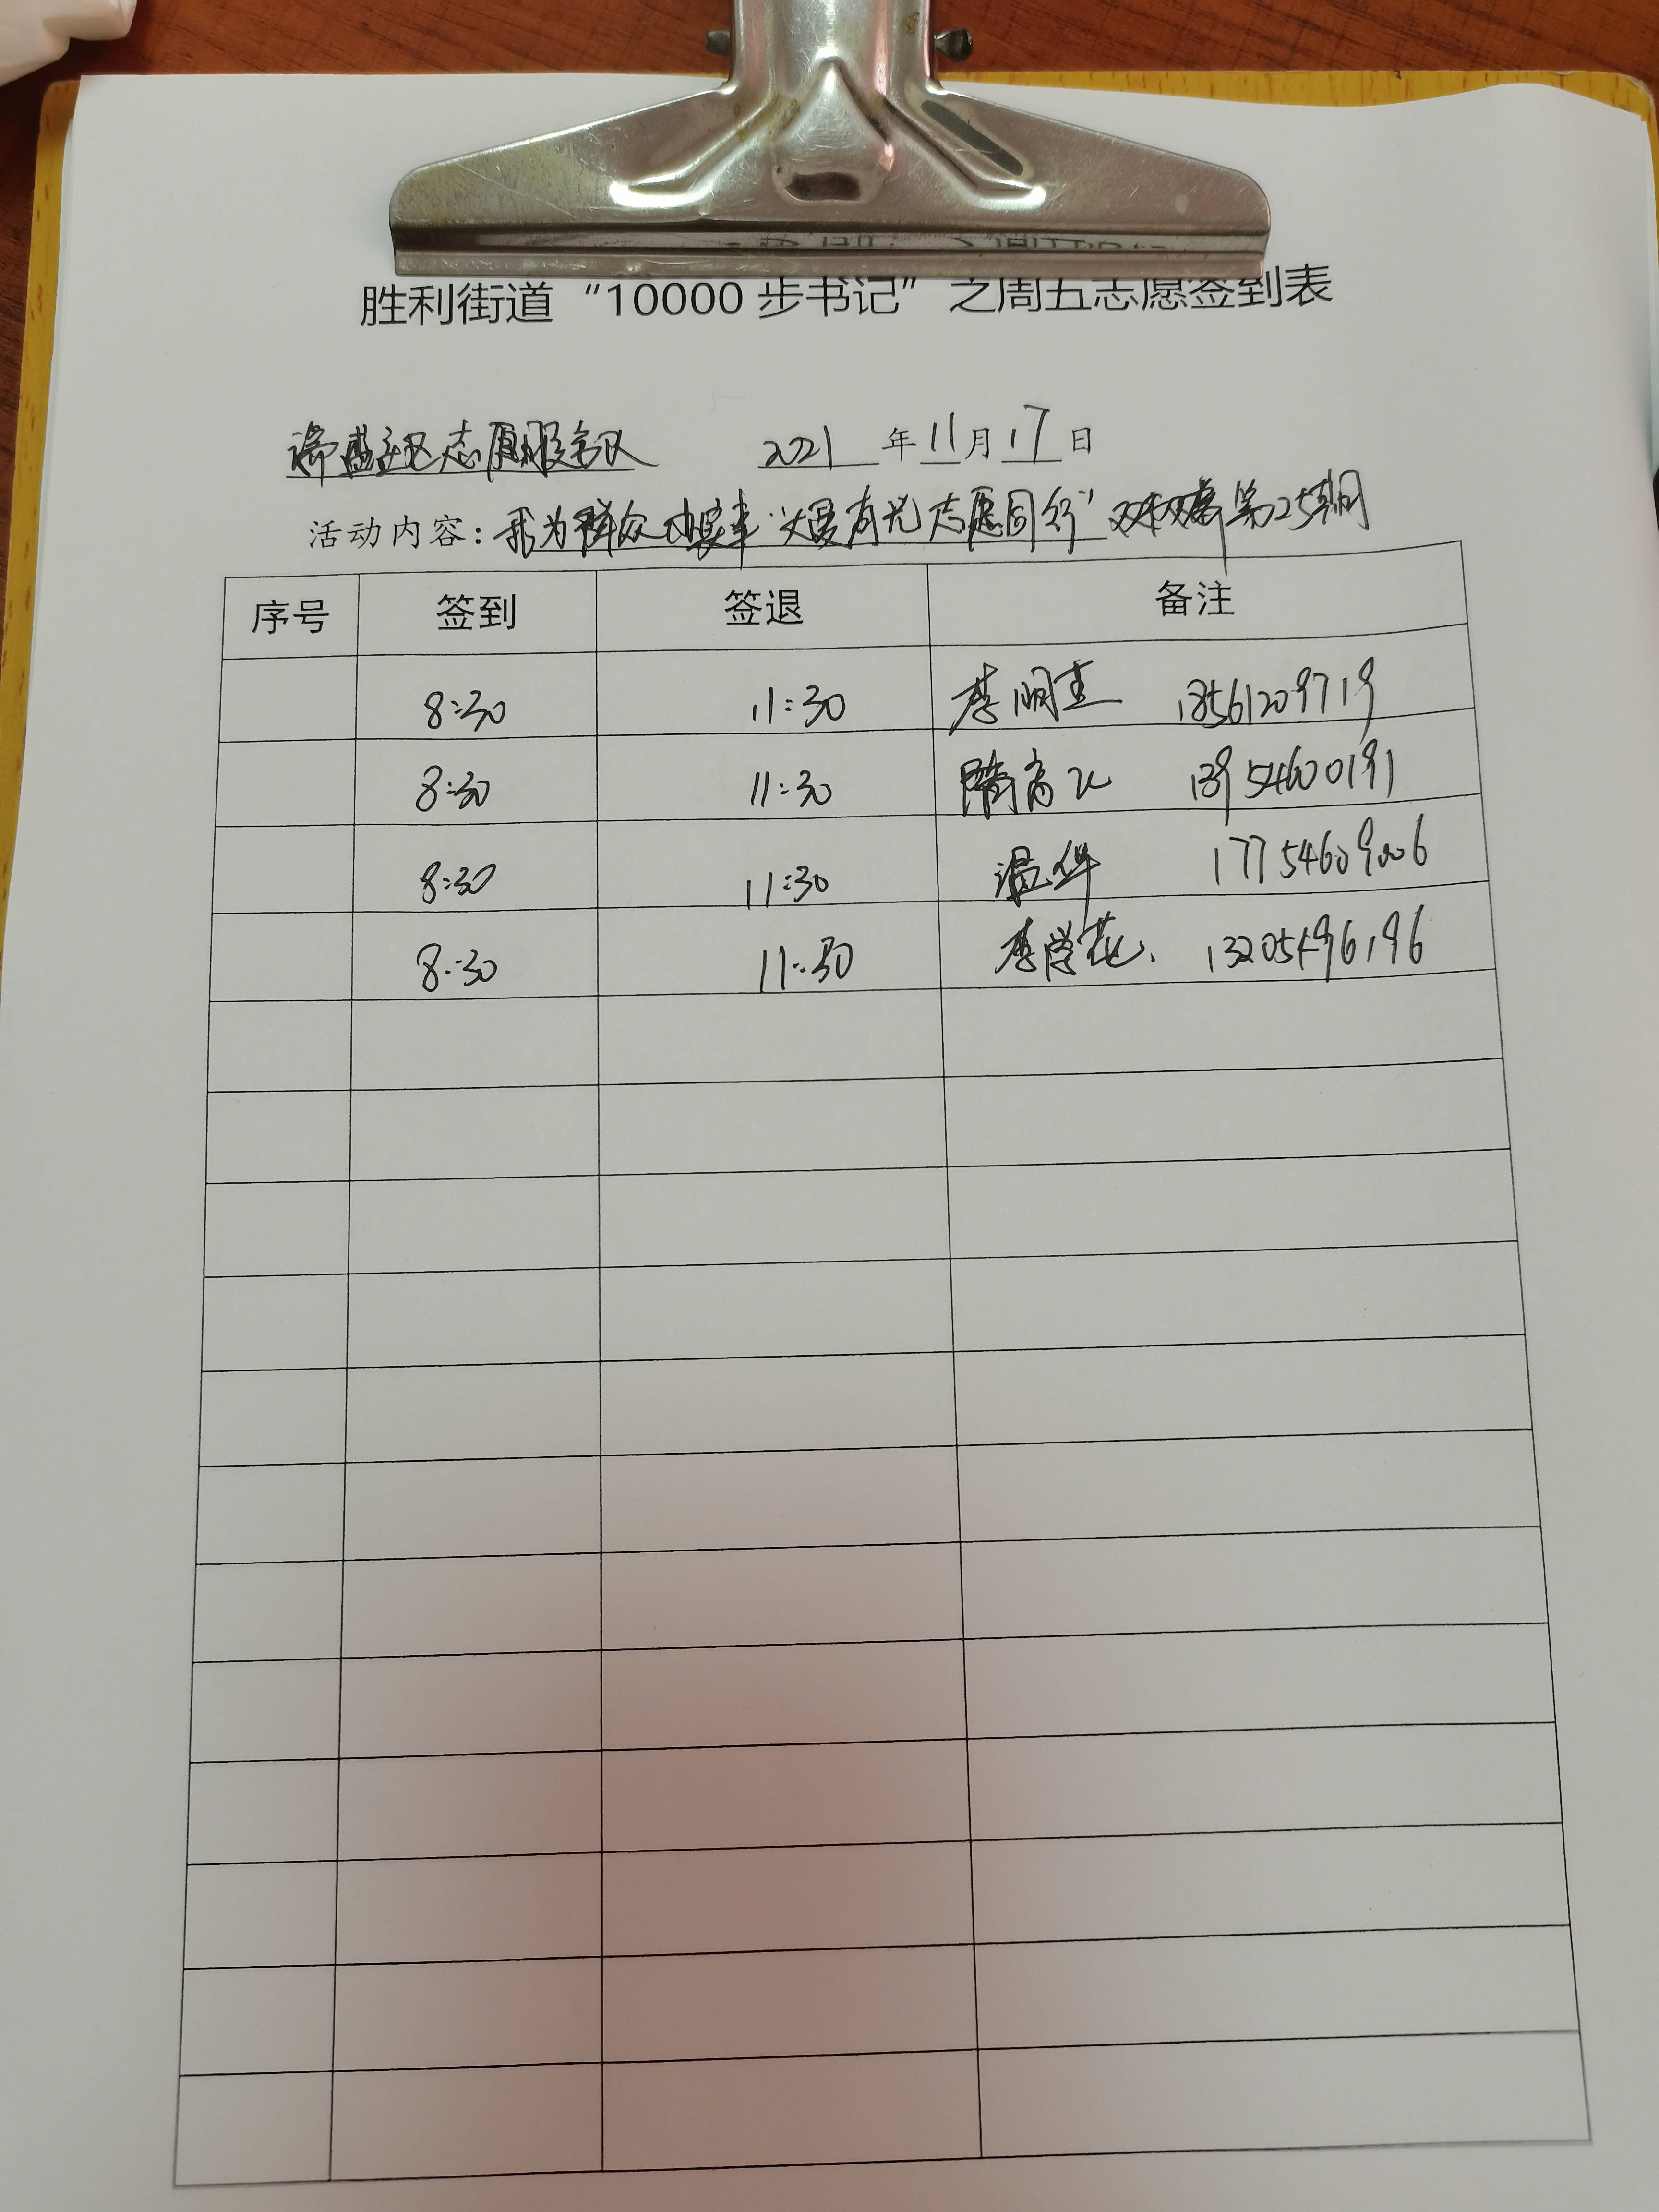 胜利街道“10000 步书记”之周五志愿签到表
社区志愿服务队 2021 年 11 月 17 日
活动内容：我为群众办实事“大爱有光 志愿同行” 第25期
序号 签到 签退 备注
8:30 11:30 李明 13561209719
8:30 11:30 隋 13954600191
8:30 11:30 温华 17754609006
8:30 11:30 李学花 13205496196